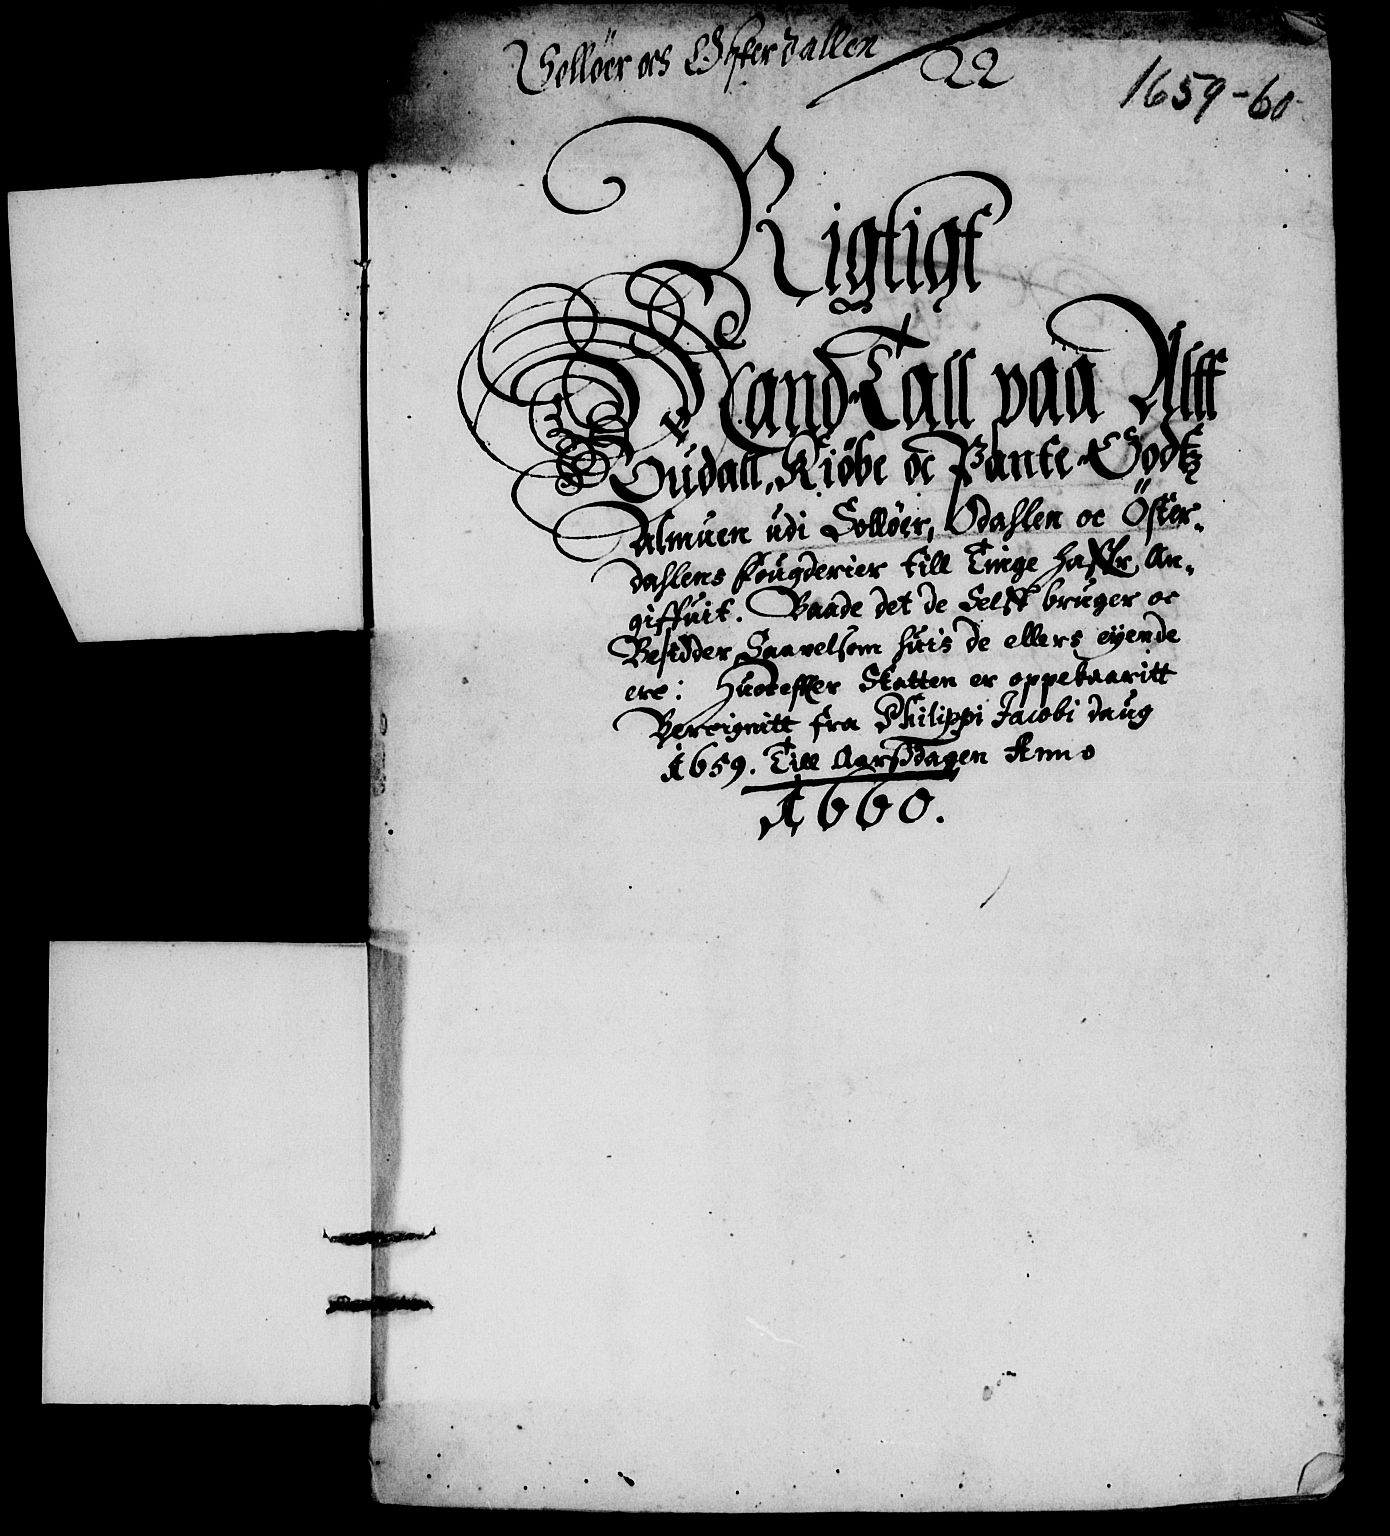 Solløer och Østerdallen 22
1659-60
Rigtigt
Mand-Tall paa Altt
Oudall, Kiøbe oc Pante-Godtz
Almuen udi Solløer, Odahlen oc Öster-
dahlens fougderier till Tinge haffr An-
giffuit. Baade det de Selff bruger oc
Besidder Saavelsom huis de ellers eyende
ere: Huoreffter Skatten er oppebaaritt
Bereignitt fra Philippi Jacobi daug
1659. Till Aarsdagen Anno
1660.